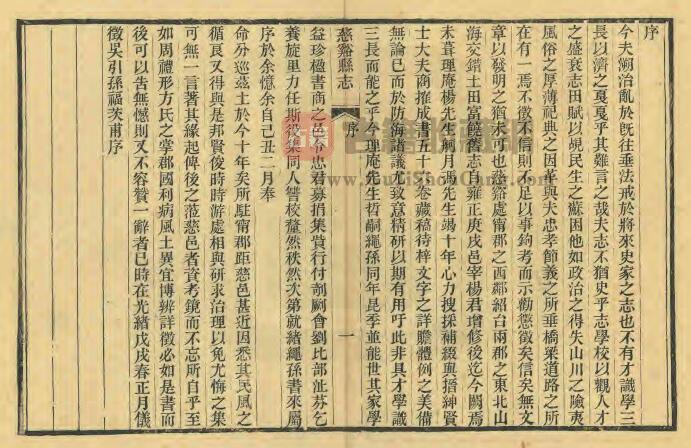 序
今夫溯治亂於旣往垂法戒於將來史家之志也不有才識學三
長以濟之戛戛乎其難言之哉夫志不猶史乎志學校以觀人才
之盛衰志田賦以覘民生之蘇困他如政治之得失山川之險夷
風俗之厚薄祀典之因革與夫忠孝節義之所垂橋梁道路之所
在有一焉不徵不信則不足以事鉤考而示勸懲徵矣信矣無文
章以發明之猶未可也慈谿處甯郡之西鄰紹台兩郡之東北山
海交錯土田富饒舊志自雍正庚戌邑宰楊君增修後迄今闕焉
未葺理庵楊先生艸月馮先生竭十年心力搜採補綴與搢紳賢
士大夫商搉成書五十 卷藏稿待梓文字之詳贍體例之美備
無論已而於防海諸議尤致意精研以期有用吁此非具才學識
三長而能之乎今理庵先生哲嗣繩孫同年昆季並能世其家學
慈谿縣志
序
一
益珍楹書商之邑 忠君募捐集貲行付剞劂會劉比部
養旋里力任斯役集同人讐校釐然秩然次第就緒繩孫書來屬
序於余憶余自己丑二月奉
命分巡茲土於今十年矣所駐甯郡距慈邑甚近因悉其民風之
循良又得與是邦賢俊時時游處相與研求治理以免尤悔之集
可無一言著其緣起俾後之蒞慈邑者資考鏡而不忘所自乎至
如周禮形方氏之掌郡國利病風土異宜博辨詳徵必如是書而
後可以告無憾則又不容贊一辭者已時在光緒戊戌春正月儀
徵吳引孫福茨甫序
www.GujiShouCang.com